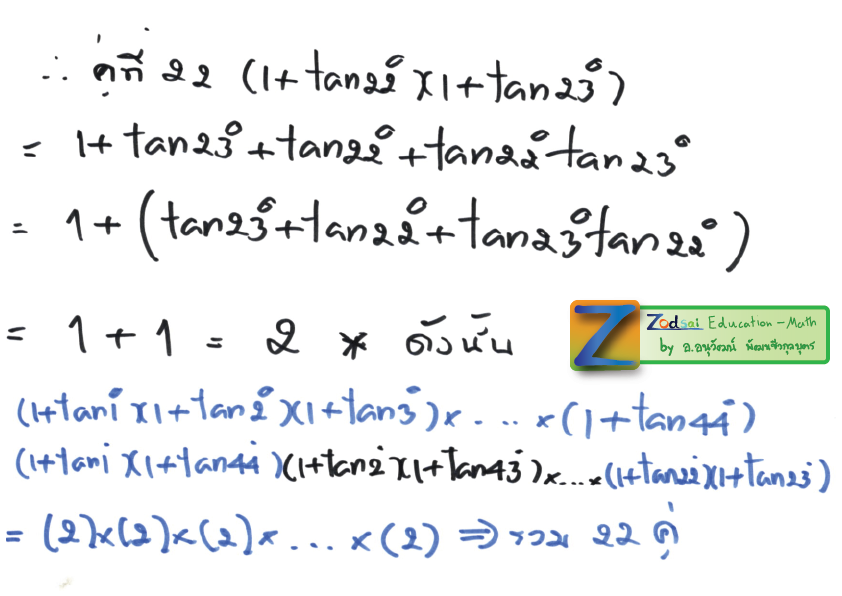 ∴ คู่ที่ 22 (1+tan22°)(1+tan23°)
= 1+tan23°+tan22°+tan22°tan23°
= 1+(tan23°+tan22°+tan23°tan22°)
= 1+1 = 2 * ดังนั้น
Z Zodsai Education-Math
by อ.อนุวัฒน์
(1+tan1°)(1+tan2°)(1+tan3°)×....×(1+tan44°)
(1+tan1°)(1+tan44°)(1+tan2°)(1+tan43°)×....×(1+tan22°)(1+tan23°)
= (2)×(2)×(2)×...×(2) ⇒ รวม 22 คู่